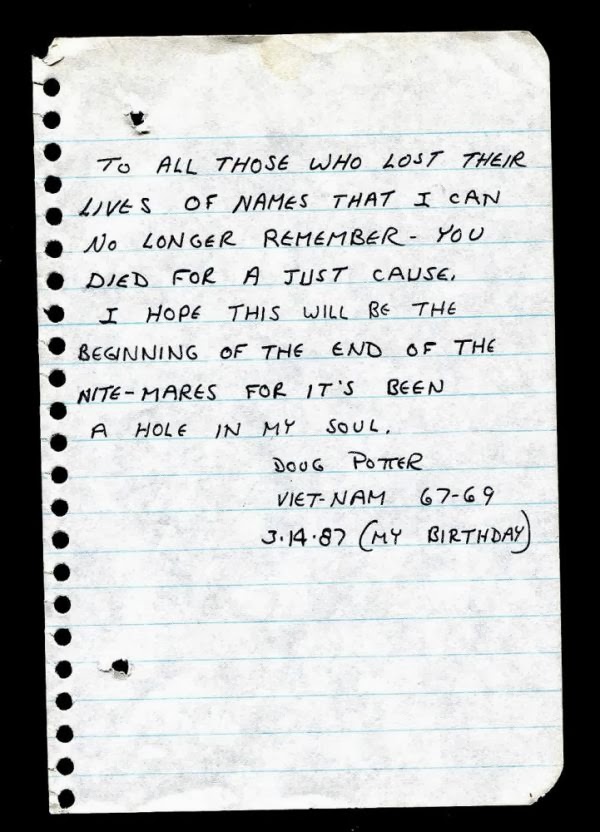 TO ALL THOSE WHO LOST THEIR
LIVES OF NAMES THAT I CAN
NO LONGER REMEMBER - YOU
DIED FOR A JUST CAUSE.
I HOPE THIS WILL BE THE
BEGINNING OF THE END OF THE
NITE-MARES FOR IT'S BEEN
A HOLE IN MY SOUL.
DOUG POTTER
VIET-NAM 67-69
3.14.87 (MY BIRTHDAY)